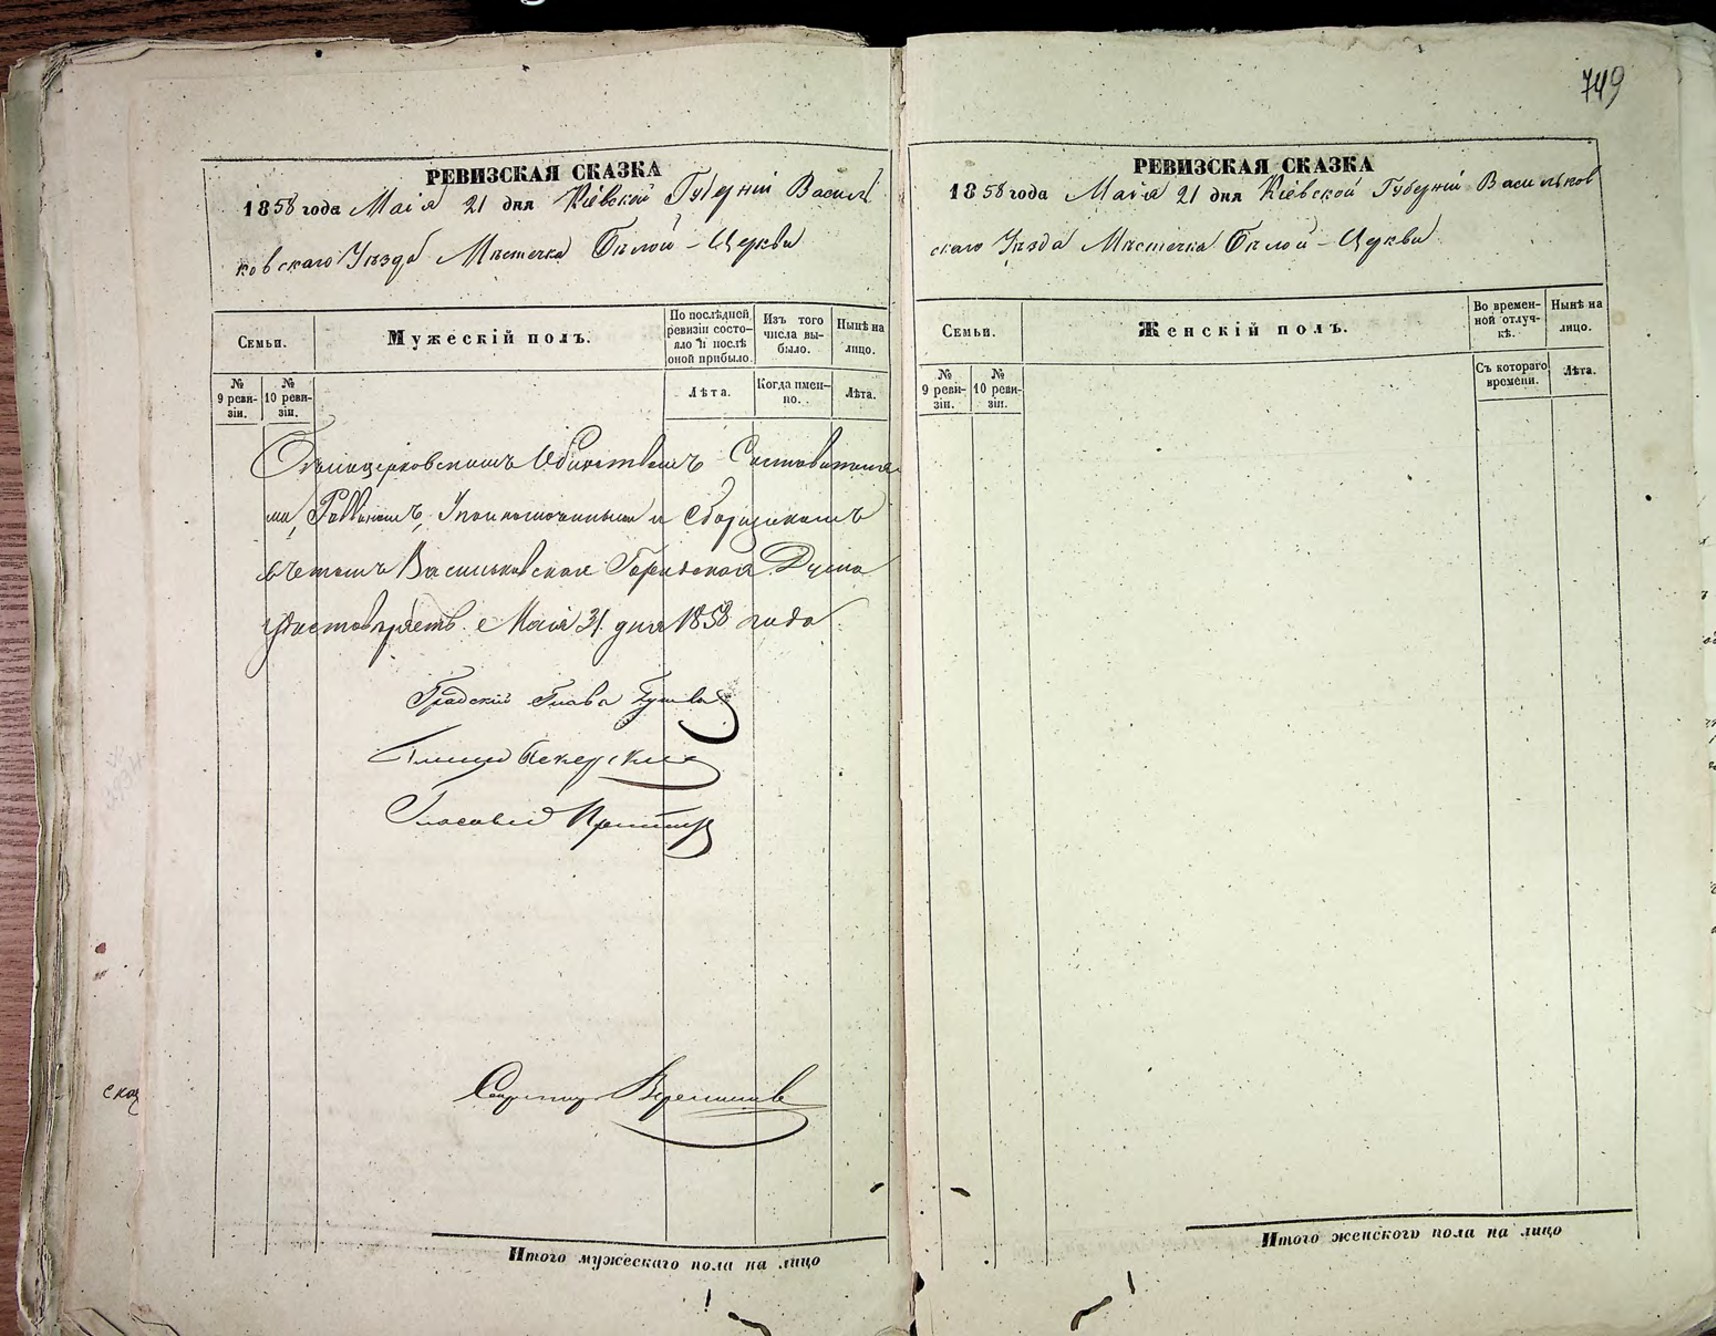 749
РЕВИЗСКАЯ СКАЗКА
1858 года Маія 21 дня Кіевской Губерніи Василь
ковскаго Уѣзда Мѣстечка Бѣлой-Церкви
Семьи.
Мужескій полъ.
По послѣдней ревизіи состояло и послѣ оной прибыло.
Изъ того числа выбыло.
Нынѣ на лицо.
№ 9 ревизіи.
№ 10 ревизіи.
Лѣта.
Когда именно.
Лѣта.
Бѣлоцерковскимъ Обществомъ Составителя
ми, Раввиномъ, Уполномоченными и Сборщикомъ
въ томъ Васильковская Городская Дума
удостовѣряетъ. Маія 31 дня 1858 года
Градскій Глава
Гласный
Секретарь
Итого мужескаго пола на лицо
РЕВИЗСКАЯ СКАЗКА
1858 года Маія 21 дня Кіевской Губерніи Васильков
скаго Уѣзда Мѣстечка Бѣлой-Церкви
Семьи.
Женскій полъ.
Во временной отлучкѣ.
Нынѣ на лицо.
№ 9 ревизіи.
№ 10 ревизіи.
Съ котораго времени.
Лѣта.
Итого женскаго пола на лицо